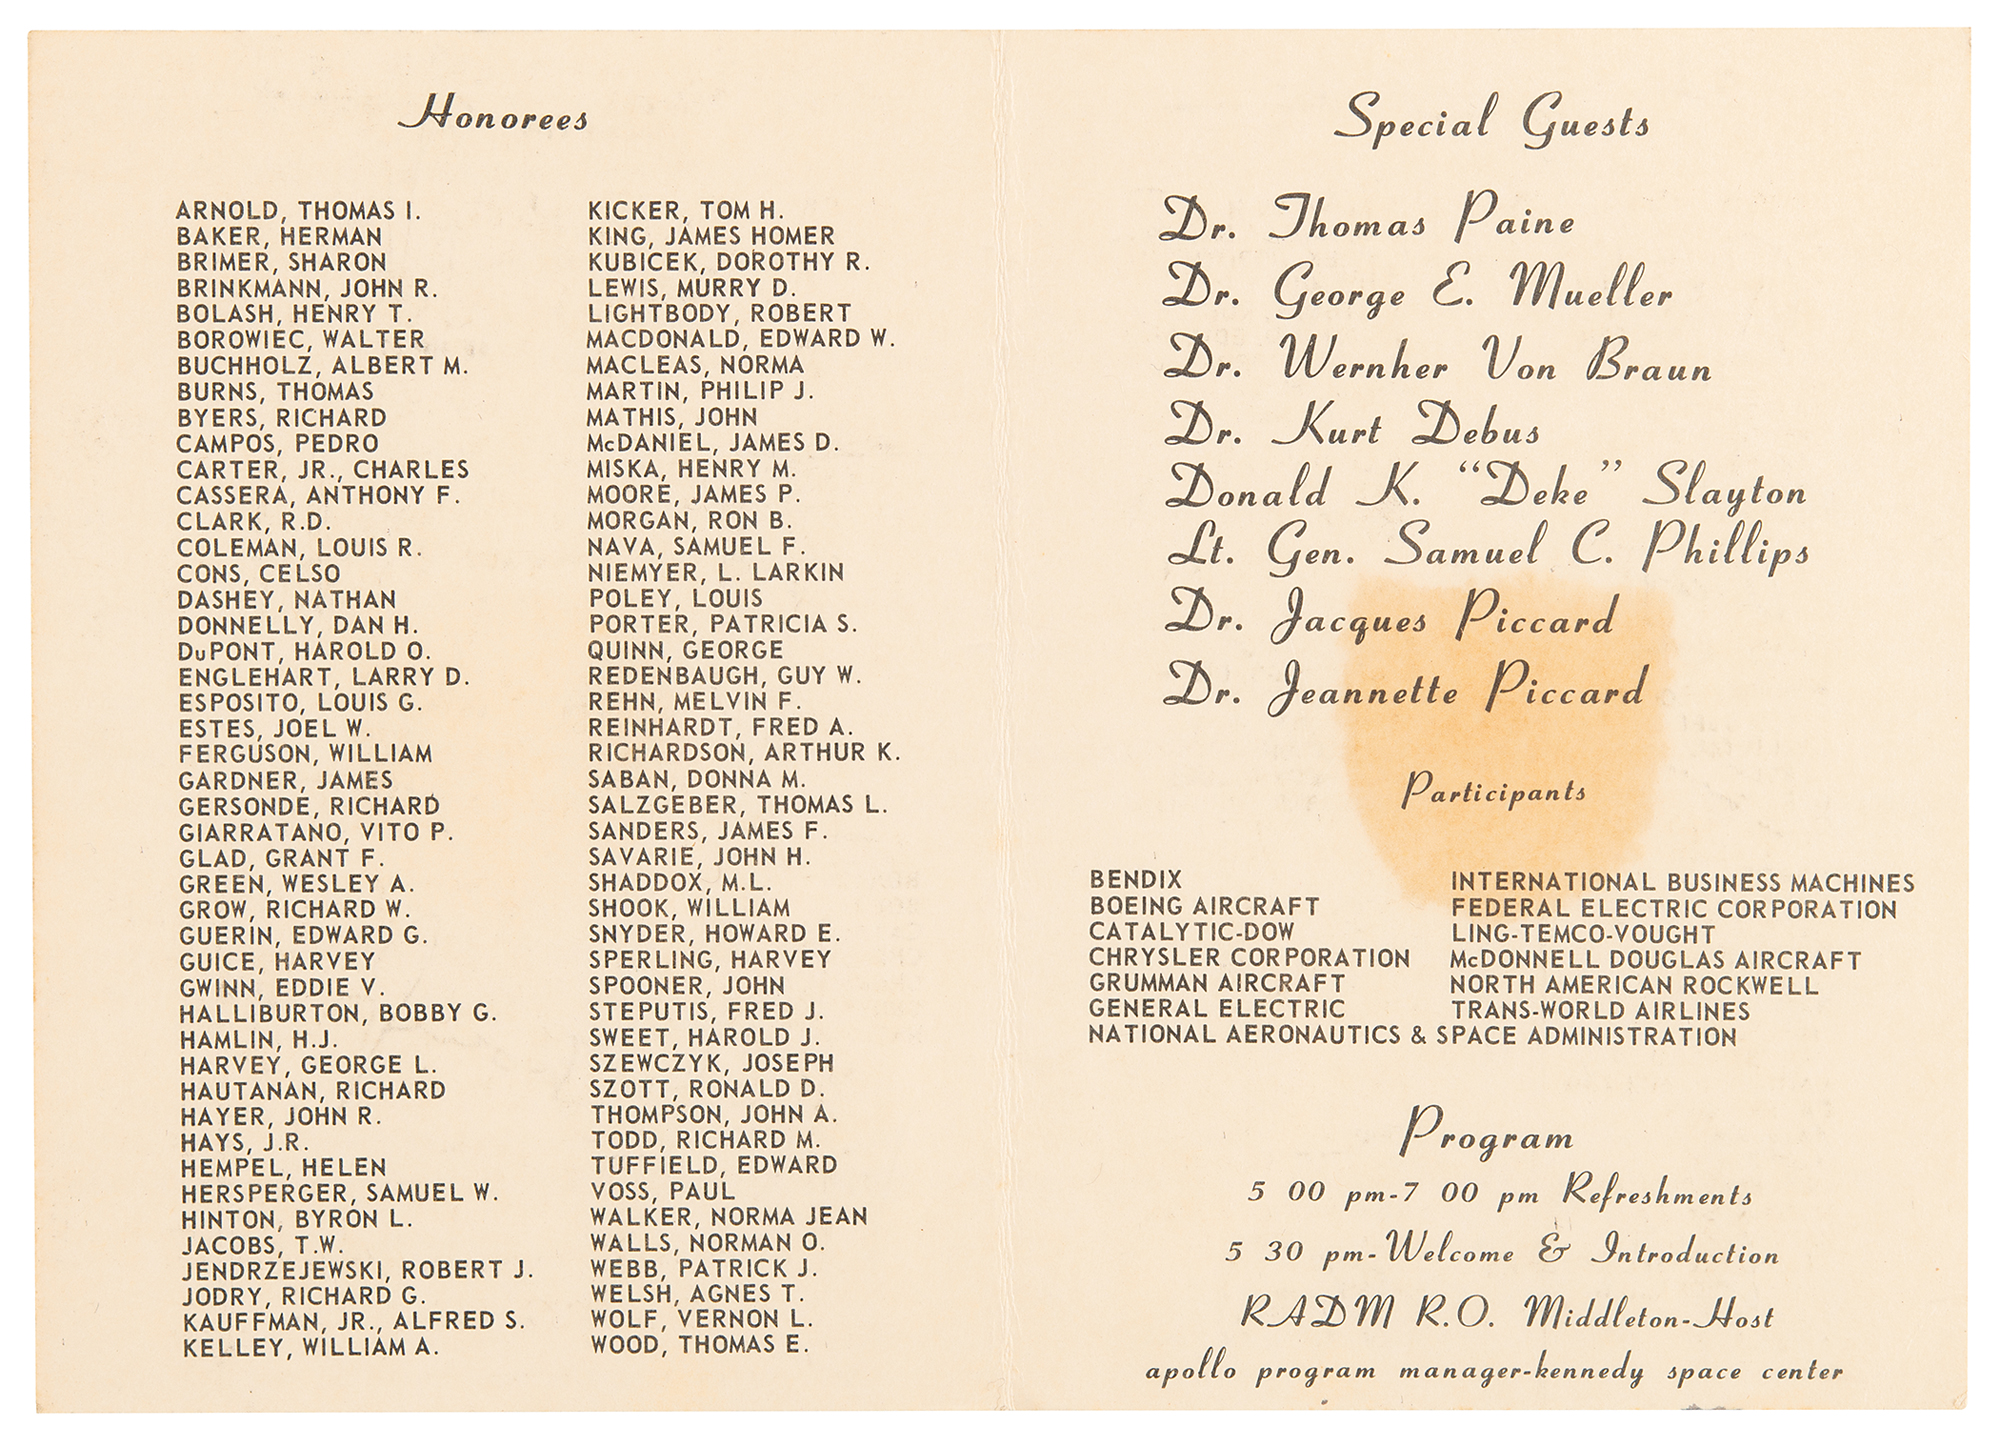 Honorees
ARNOLD, THOMAS I.
BAKER, HERMAN
BRIMER, SHARON
BRINKMANN, JOHN R.
BOLASH, HENRY T.
BOROWIEC, WALTER
BUCHHOLZ, ALBERT M.
BURNS, THOMAS
BYERS, RICHARD
CAMPOS, PEDRO
CARTER, JR., CHARLES
CASSERA, ANTHONY F.
CLARK, R.D.
COLEMAN, LOUIS R.
CONS, CELSO
DASHEY, NATHAN
DONNELLY, DAN H.
DuPONT, HAROLD O.
ENGLEHART, LARRY D.
ESPOSITO, LOUIS G.
ESTES, JOEL W.
FERGUSON, WILLIAM
GARDNER, JAMES
GERSONDE, RICHARD
GIARRATANO, VITO P.
GLAD, GRANT F.
GREEN, WESLEY A.
GROW, RICHARD W.
GUERIN, EDWARD G.
GUICE, HARVEY
GWINN, EDDIE V.
HALLIBURTON, BOBBY G.
HAMLIN, H.J.
HARVEY, GEORGE L.
HAUTANAN, RICHARD
HAYER, JOHN R.
HAYS, J.R.
HEMPEL, HELEN
HERSPERGER, SAMUEL W.
HINTON, BYRON L.
JACOBS, T.W.
JENDRZEJEWSKI, ROBERT J.
JODRY, RICHARD G.
KAUFFMAN, JR., ALFRED S.
KELLEY, WILLIAM A.
KICKER, TOM H.
KING, JAMES HOMER
KUBICEK, DOROTHY R.
LEWIS, MURRY D.
LIGHTBODY, ROBERT
MACDONALD, EDWARD W.
MACLEAS, NORMA
MARTIN, PHILIP J.
MATHIS, JOHN
McDANIEL, JAMES D.
MISKA, HENRY M.
MOORE, JAMES P.
MORGAN, RON B.
NAVA, SAMUEL F.
NIEMYER, L. LARKIN
POLEY, LOUIS
PORTER, PATRICIA S.
QUINN, GEORGE
REDENBAUGH, GUY W.
REHN, MELVIN F.
REINHARDT, FRED A.
RICHARDSON, ARTHUR K.
SABAN, DONNA M.
SALZGEBER, THOMAS L.
SANDERS, JAMES F.
SAVARIE, JOHN H.
SHADDOX, M.L.
SHOOK, WILLIAM
SNYDER, HOWARD E.
SPERLING, HARVEY
SPOONER, JOHN
STEPUTIS, FRED J.
SWEET, HAROLD J.
SZEWCZYK, JOSEPH
SZOTT, RONALD D.
THOMPSON, JOHN A.
TODD, RICHARD M.
TUFFIELD, EDWARD
VOSS, PAUL
WALKER, NORMA JEAN
WALLS, NORMAN O.
WEBB, PATRICK J.
WELSH, AGNES T.
WOLF, VERNON L.
WOOD, THOMAS E.
Special Guests
Dr. Thomas Paine
Dr. George E. Mueller
Dr. Wernher Von Braun
Dr. Kurt Debus
Donald K. “Deke” Slayton
Lt. Gen. Samuel C. Phillips
Dr. Jacques Piccard
Dr. Jeannette Piccard
Participants
BENDIX
BOEING AIRCRAFT
CATALYTIC-DOW
CHRYSLER CORPORATION
GRUMMAN AIRCRAFT
GENERAL ELECTRIC
INTERNATIONAL BUSINESS MACHINES
FEDERAL ELECTRIC CORPORATION
LING-TEMCO-VOUGHT
McDONNELL DOUGLAS AIRCRAFT
NORTH AMERICAN ROCKWELL
TRANS-WORLD AIRLINES
NATIONAL AERONAUTICS & SPACE ADMINISTRATION
Program
5 00 pm-7 00 pm Refreshments
5 30 pm-Welcome & Introduction
RADM R.O. Middleton-Host
apollo program manager-kennedy space center